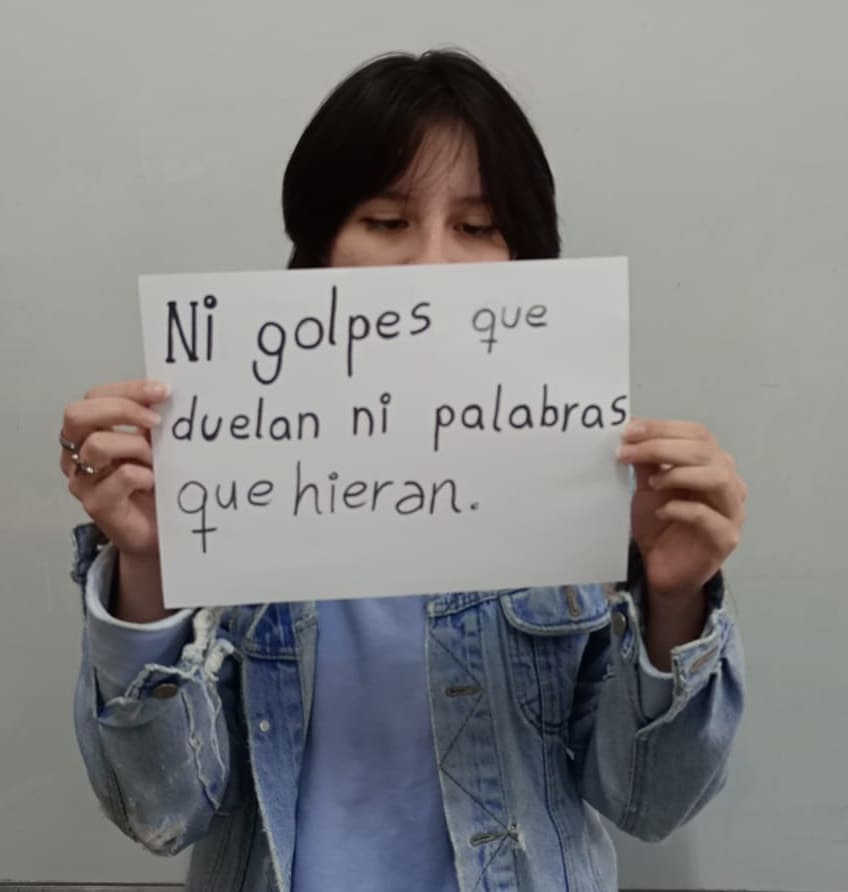 Ni golpes que
duelan ni palabras
que hieran.